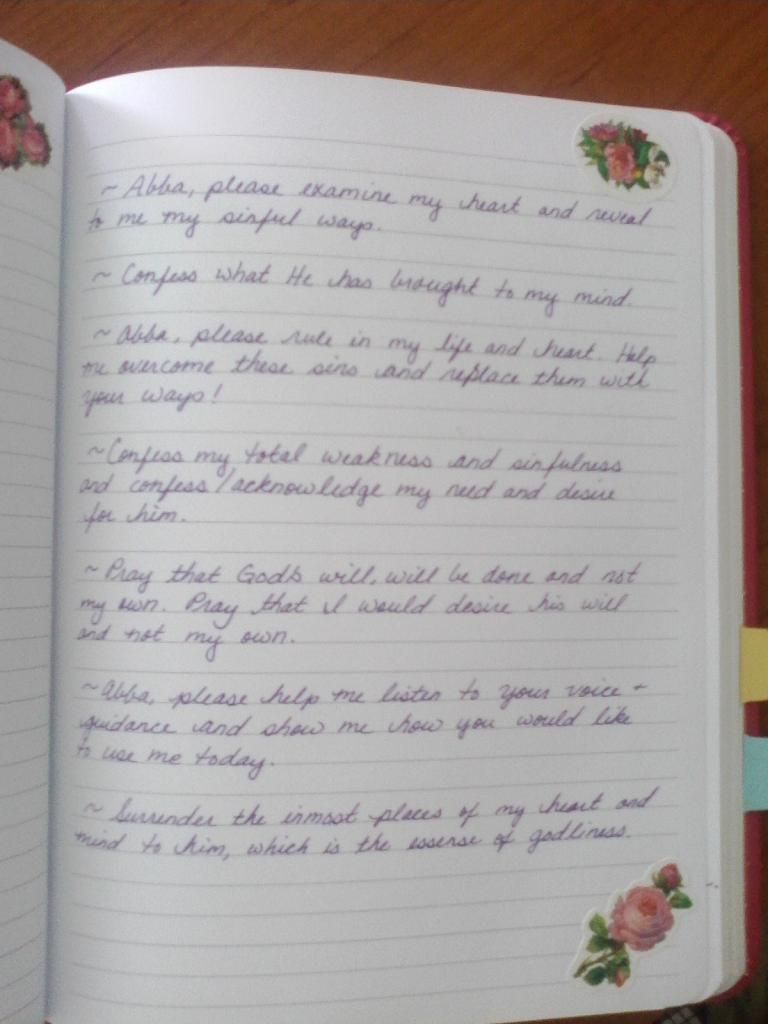 ~ Abba, please examine my heart and reveal
to me my sinful ways.
~ Confess what He has brought to my mind.
~ Abba, please rule in my life and heart. Help
me overcome these sins and replace them with
your ways!
~ Confess my total weakness and sinfulness
and confess/acknowledge my need and desire
for him.
~ Pray that God's will, will be done and not
my own. Pray that I would desire his will
and not my own.
~ Abba, please help me listen to your voice +
guidance and show me how you would like
to use me today.
~ Surrender the inmost places of my heart and
mind to him, which is the essense of godliness.